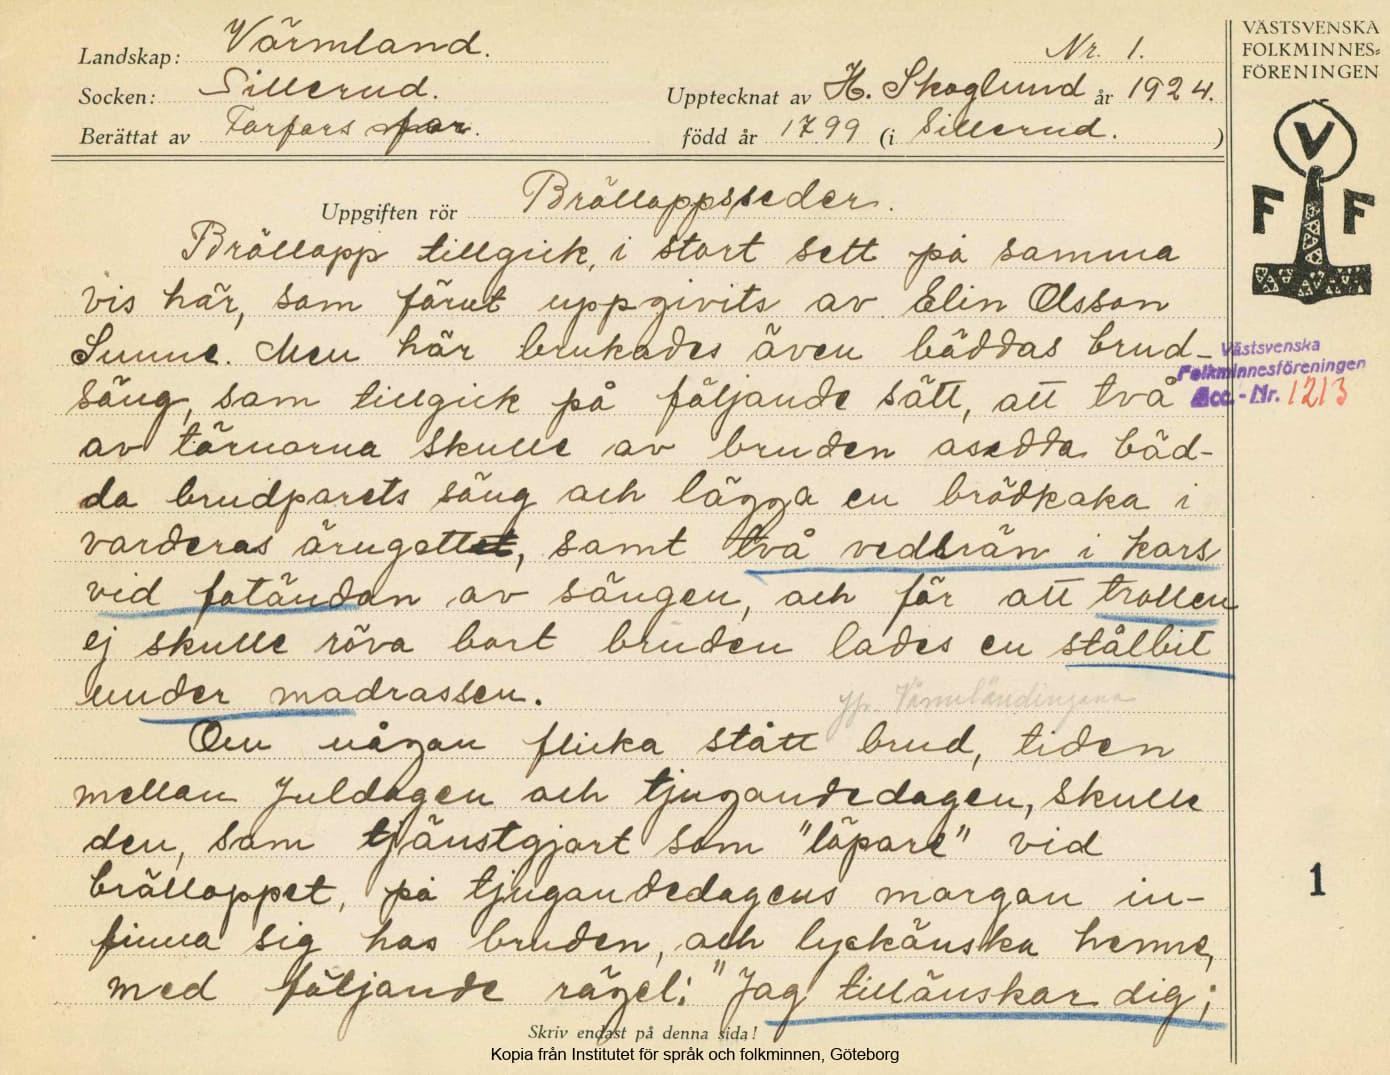 VÄSTSVENSKA
FOLKMINNES-
FÖRENINGEN
V
F F
Landskap: Värmland. Nr. 1.
Socken: Sillerud. Upptecknat av H. Skoglund år 1924.
Berättat av Farfars far. född år 1799 (i Sillerud. )
Uppgiften rör Brölloppsseder.
Bröllopp tillgick, i stort sett på samma
vis här, som förut uppgivits av Elin Olsson
Sunne. Men här brukades även bäddas brud-
säng, som tillgick på följande sätt, att två
av tärnorna skulle av bruden asedda bäd-
da brudparets säng och lägga en brödkaka i
varderas örngott, samt två vedträn i kors
vid fotändan av sängen, och för att trollen
ej skulle röva bort bruden lades en stålbit
under madrassen.
jfr. Värmländingarna
Om någon flicka stått brud, tiden
mellan Juldagen och tjugondedagen, skulle
den, som tjänstgjort som "löpare" vid
brölloppet, på tjugondedagens morgon in-
finna sig hos bruden, och lyckönska henne,
med följande rägel: "Jag tillönskar dig;
Skriv endast på denna sida!
Kopia från Institutet för språk och folkminnen, Göteborg
Västsvenska
Folkminnesföreningen
Acc.-Nr. 1213
1